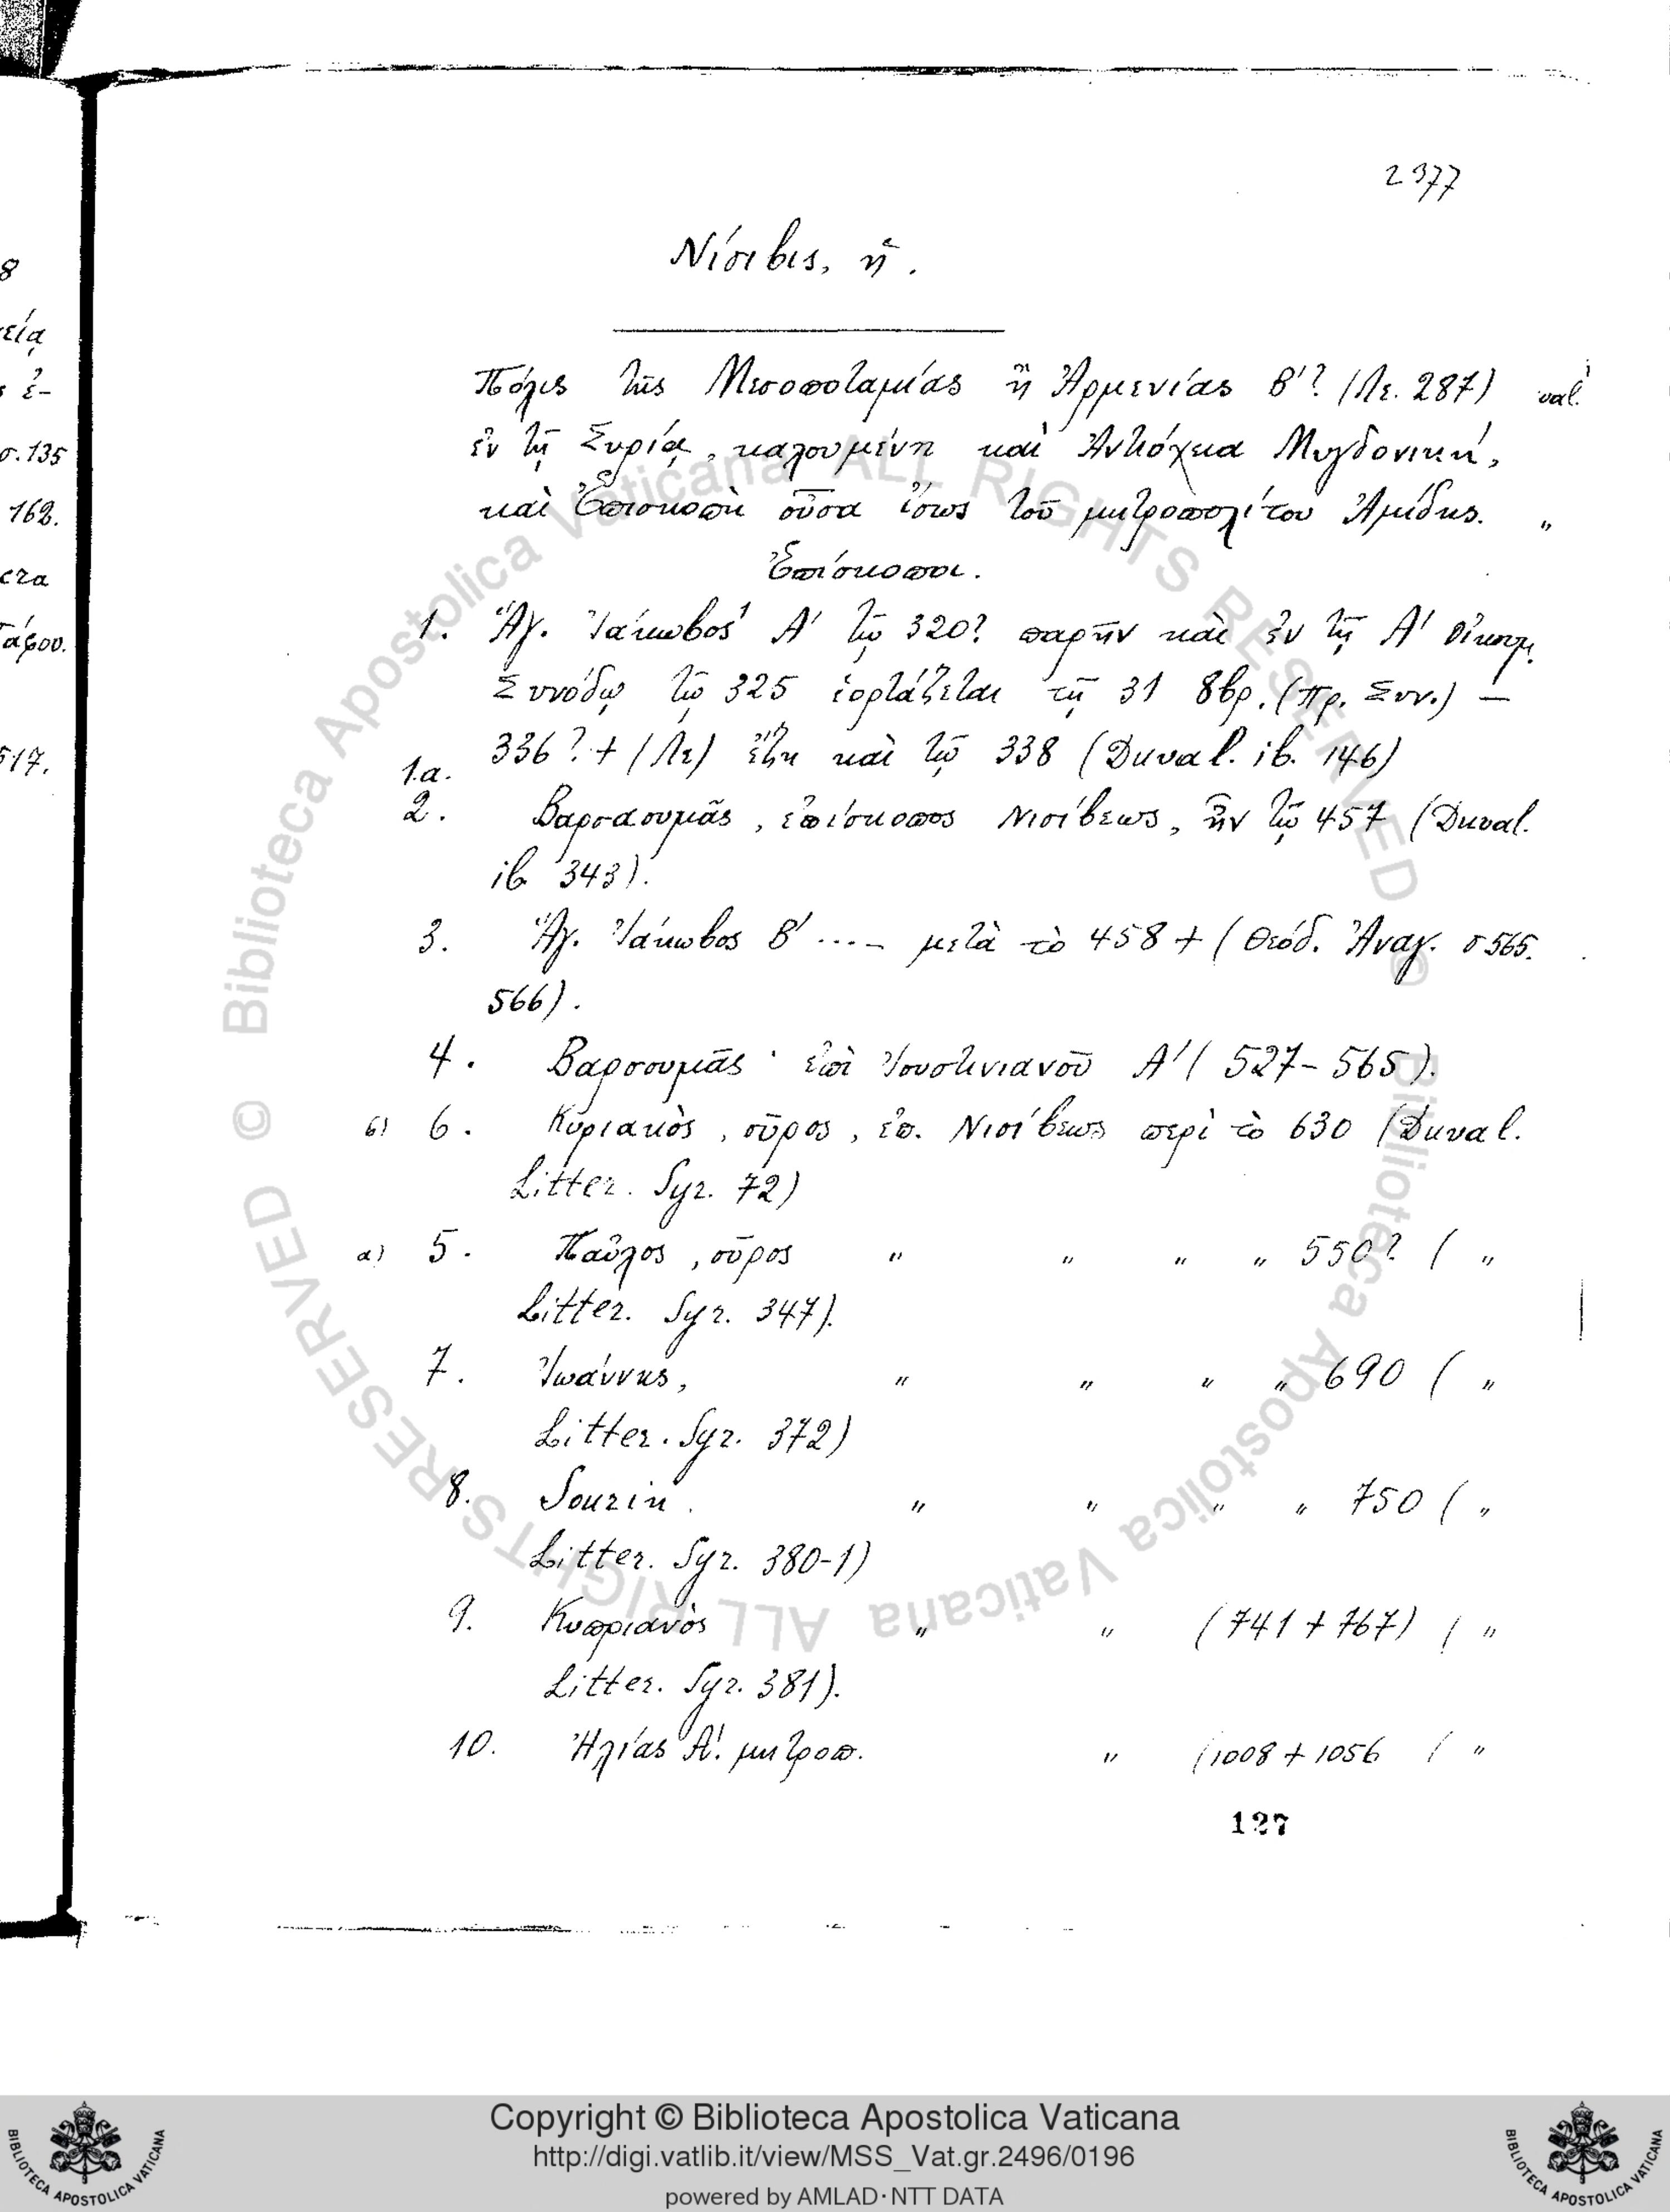 8
εία
ς ἐ-
σ. 135
162.
cra
τάφου.
517.
2377
Νίσιβις, ἡ.
Πόλις τῆς Μεσοποταμίας ἢ Ἀρμενίας Β'? (Λε. 287) καὶ
ἐν τῇ Συρίᾳ, καλουμένη καὶ Ἀντιόχεια Μυγδονική,
καὶ Ἐπισκοπὴ οὖσα ἴσως τοῦ μητροπολίτου Ἀμίδης. "
Ἐπίσκοποι.
1. Ἅγ. Ἰάκωβος Α' τῷ 320? παρῆν καὶ ἐν τῇ Α' Οἰκουμ.
Συνόδῳ τῷ 325 ἑορτάζεται τῇ 31 8βρ. (Πρ. Συν.) –
336? + (Λε) ἔτη καὶ τῷ 338 (Duval. ib. 146)
1.a.
2. Βαρσαουμᾶς, ἐπίσκοπος Νισίβεως, ἦν τῷ 457 (Duval.
ib 343).
3. Ἅγ. Ἰάκωβος Β' ...– μετὰ τὸ 458 + (Θεόδ. Ἀναγ. σ 565.
566).
4. Βαρσουμᾶς · ἐπὶ Ἰουστινιανοῦ Α' (527-565).
β) 6. Κυριακὸς, σῦρος, ἐπ. Νισίβεως περὶ τὸ 630 (Duval.
Litter. Syr. 72)
α) 5. Παῦλος, σῦρος " " " " 550? ( "
Litter. Syr. 347).
7. Ἰωάννης, " " " " 690 ( "
Litter. Syr. 372)
8. Sourin. " " " " 750 ( "
Litter. Syr. 380-1)
9. Κυπριανὸς " " (741 + 767) ( "
Litter. Syr. 381).
10. Ἠλίας Α'. μητροπ. " (1008 + 1056 ( "
127
© Biblioteca Apostolica Vaticana ALL RIGHTS RESERVED © Biblioteca Apostolica Vaticana ALL RIGHTS RESERVED
Copyright © Biblioteca Apostolica Vaticana
http://digi.vatlib.it/view/MSS_Vat.gr.2496/0196
powered by AMLAD·NTT DATA
BIBLIOTECA APOSTOLICA VATICANA
BIBLIOTECA APOSTOLICA VATICANA